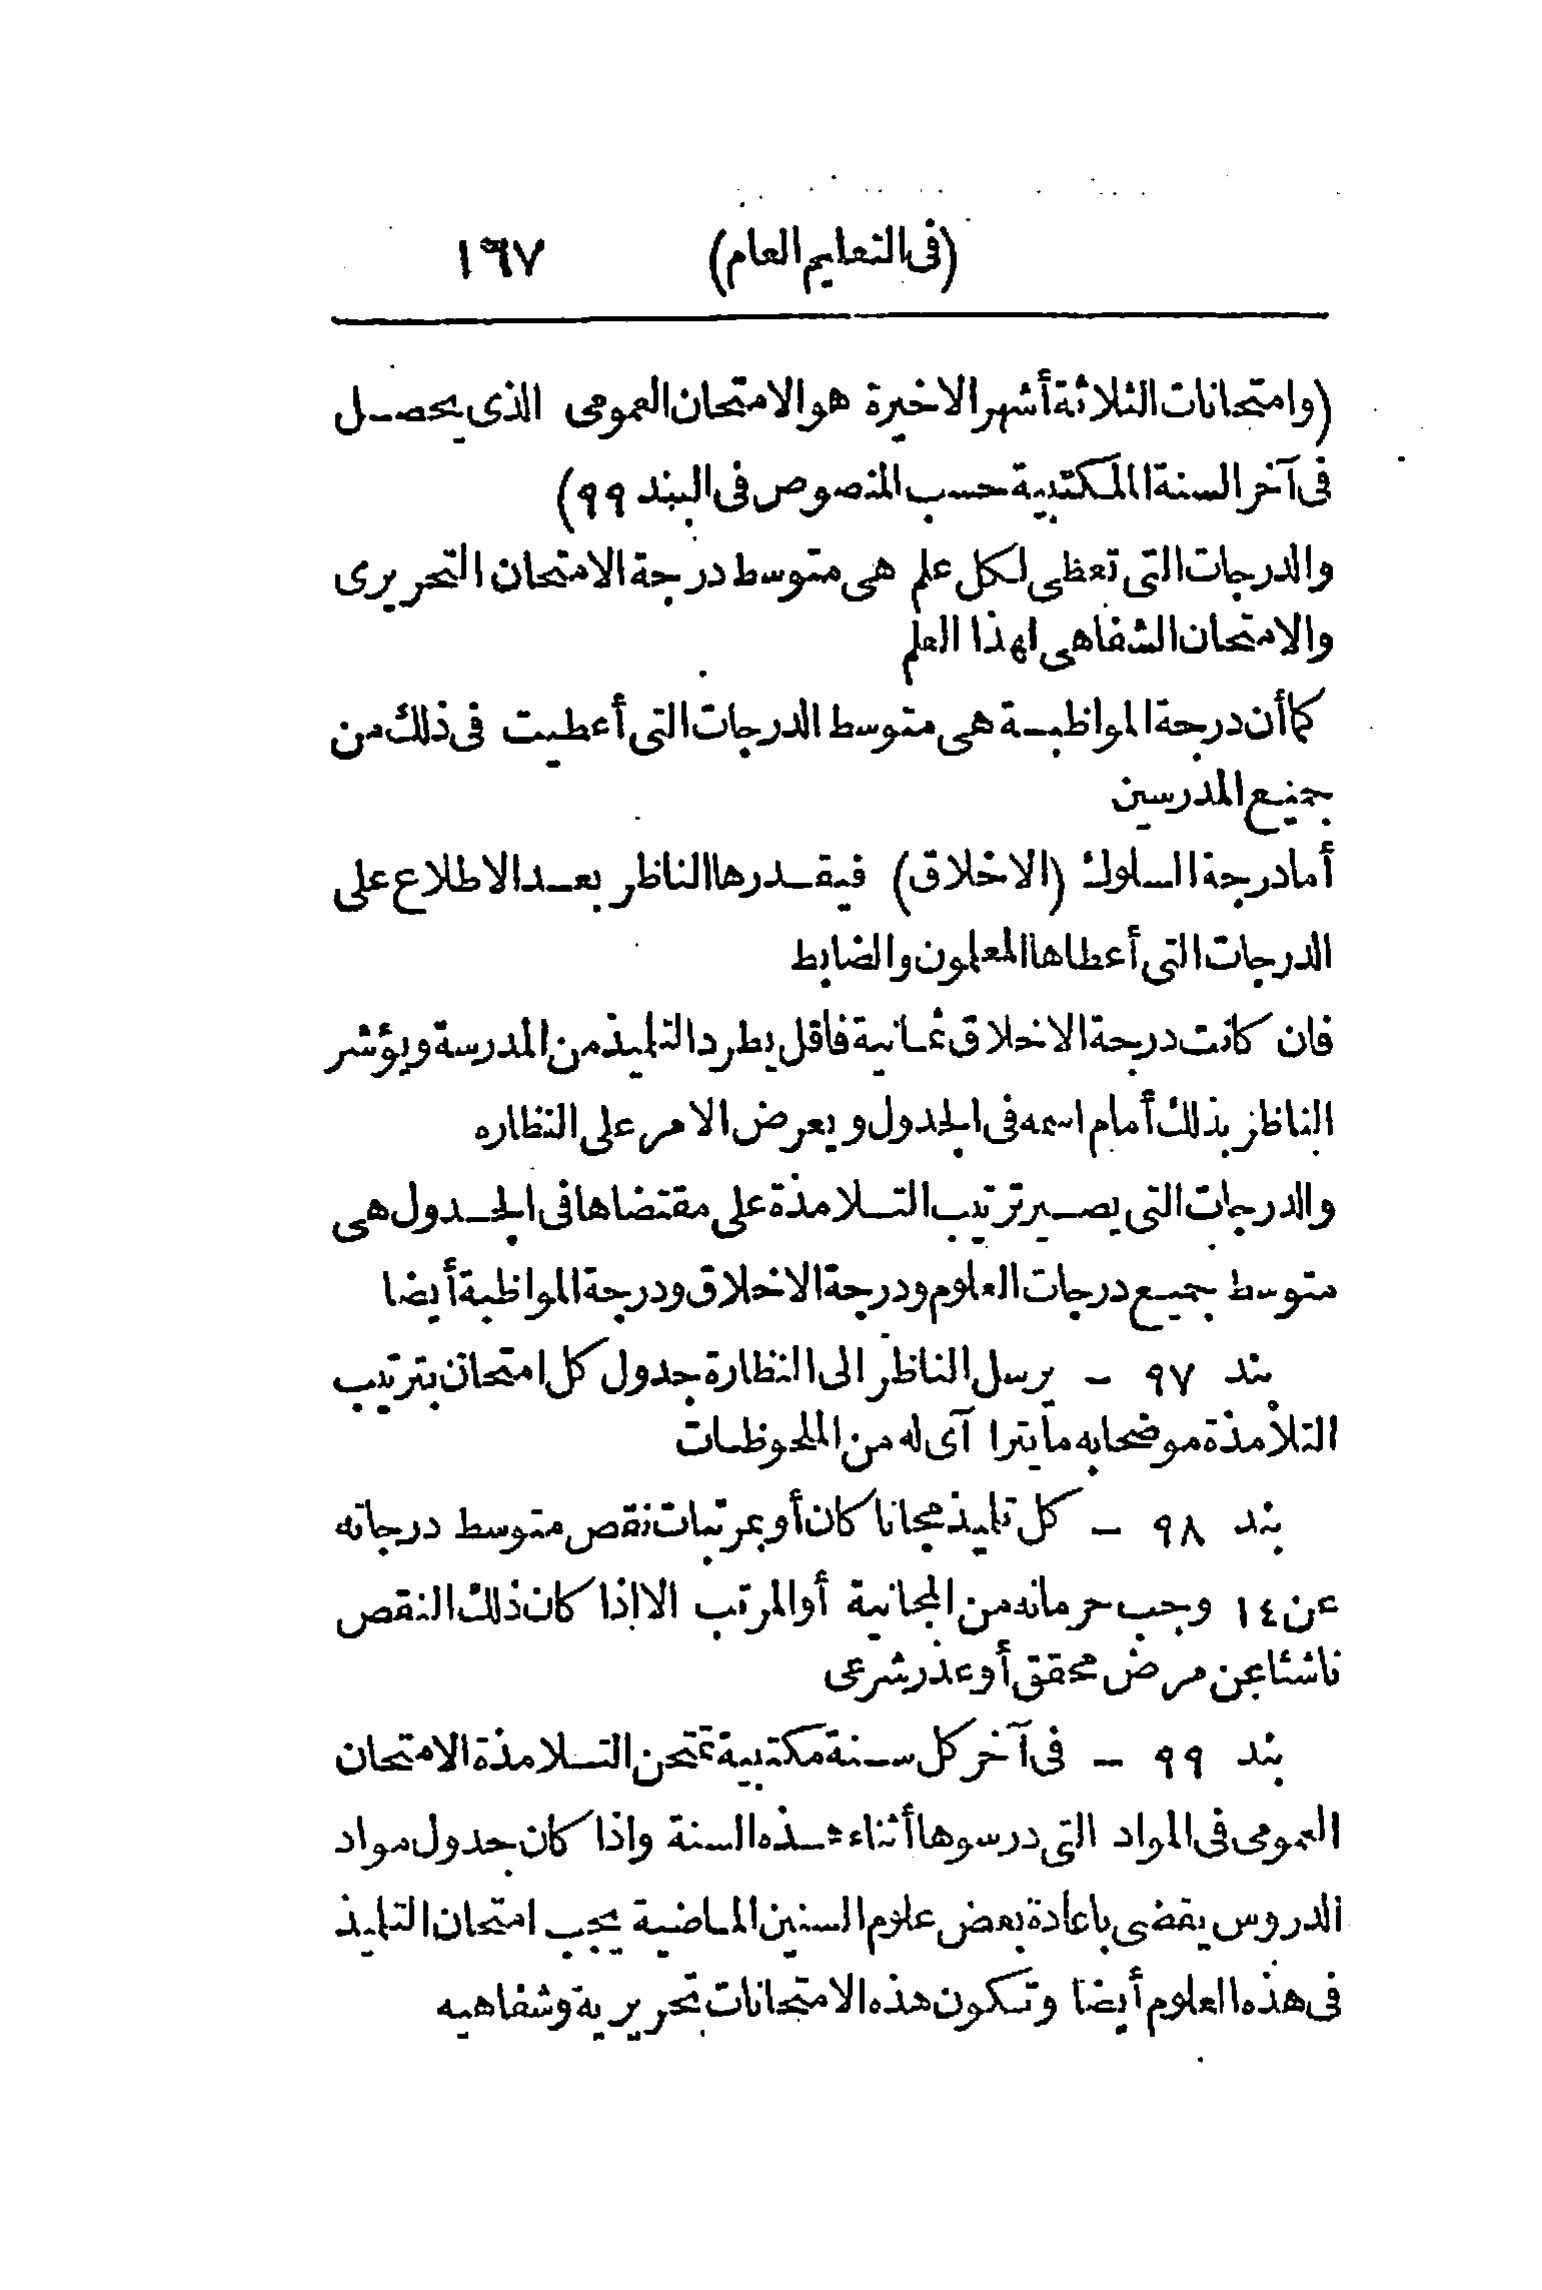 (فى التعليم العام) ١٦٧
(وامتحانات الثلاثة أشهر الاخيرة هو الامتحان العمومى الذى يحصل
فى آخر السنة المكتبية حسب المنصوص فى البند ٩٩)
والدرجات التى تعطى لكل علم هى متوسط درجة الامتحان التحريرى
والامتحان الشفاهى لهذا العلم
كما أن درجة المواظبة هى متوسط الدرجات التى أعطيت فى ذلك من
جميع المدرسين
أما درجة السلوك (الاخلاق) فيقدرها الناظر بعد الاطلاع على
الدرجات التى أعطاها المعلمون والضابط
فان كانت درجة الاخلاق ثمانية فاقل يطرد التلميذ من المدرسة ويؤشر
الناظر بذلك أمام اسمه فى الجدول ويعرض الامر على النظاره
والدرجات التى يصير ترتيب التلامذة على مقتضاها فى الجدول هى
متوسط جميع درجات العلوم ودرجة الاخلاق ودرجة المواظبة أيضا
بند ٩٧ - يرسل الناظر الى النظارة جدول كل امتحان بترتيب
التلامذة موضحا به ما يترا آى له من الملحوظات
بند ٩٨ - كل تلميذ مجانا كان أو بمرتبات نقص متوسط درجاته
عن ١٤ وجب حرمانه من المجانية أو المرتب الا اذا كان ذلك النقص
ناشئا عن مرض محقق أو عذر شرعى
بند ٩٩ - فى آخر كل سنة مكتبية تمتحن التلامذة الامتحان
العمومى فى المواد التى درسوها أثناء هذه السنة واذا كان جدول مواد
الدروس يقضى باعادة بعض علوم السنين الماضية يجب امتحان التلميذ
فى هذه العلوم أيضا وتكون هذه الامتحانات تحريرية وشفاهيه